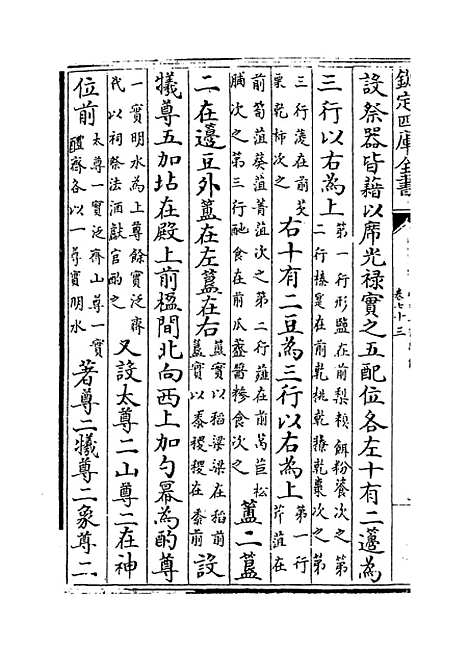 欽定四庫全書
卷七十三
設祭器皆藉以席光禄實之五配位各左十有二籩為
三行以右為上第一行形鹽在前梨榛餌粉餈次之第二行榛實在前乾桃乾䕩乾棗次之第
三行菱在前芡栗乾柿次之右十有二豆為三行以右為上第一行芹菹在
前筍菹葵菹菁菹次之第二行韮在前菭苣松脯次之第三行酏食在前瓜虀醯糝食次之簠二簋
二在籩豆外簠在左簋在右簠實以稻粱粱在稻前簋實以黍稷稷在黍前設
犧尊五加坫在殿上前楹間北向西上加勺冪為酌尊
一實明水為上尊餘實泛齊代以祠祭法酒獻官酌之又設太尊二山尊二在神
位前太尊一實泛齊山尊一實醴齊各以一尊實明水著尊二犧尊二象尊二